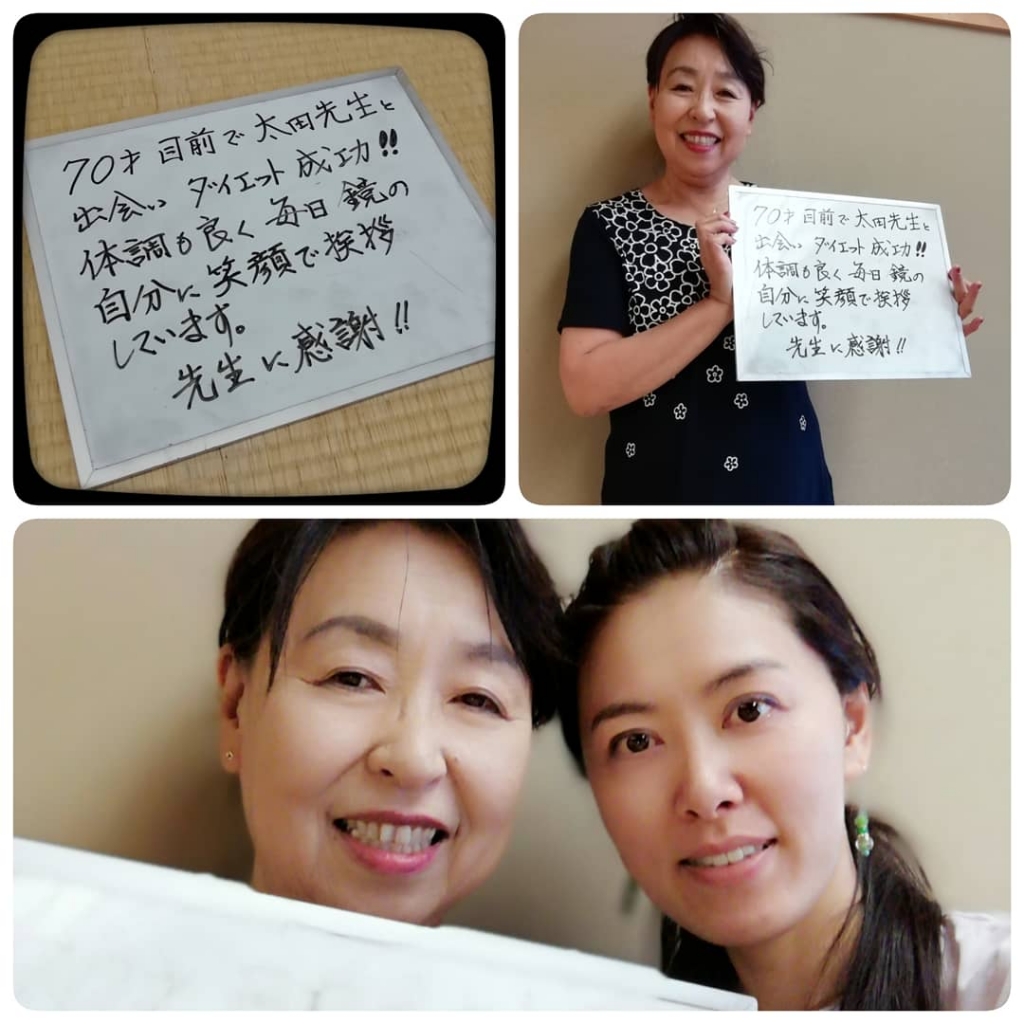 70才目前で太田先生と
出会いダイエット成功!!
体調も良く毎日鏡の
自分に笑顔で挨拶
しています。
先生に感謝!!
70才目前で太田先生と
出会いダイエット成功!!
体調も良く毎日鏡の
自分に笑顔で挨拶
しています。
先生に感謝!!